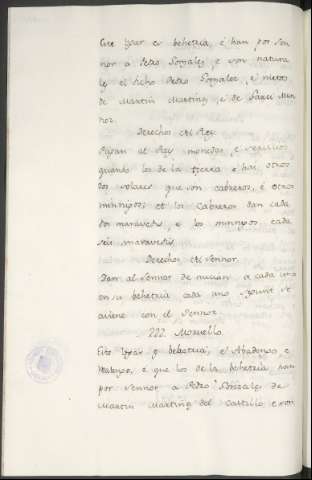 Este logar es behetria, é han por Sen
nor a Pedro Gonzalez, e son natura
les el dicho Pedro Gonzalez, é nietos
de Martin Martinez, é de Sanci Mar
nez.
Derechos del Rey.
Pagan al Rey monedas, é servicios
quando los de la tierra é hai otros
dos solares que son cabreros, é otros
é los Cabreros dan cada
dos maravedis, é los cada
seis maravedis.
Derechos del Sennor.
Dan al Sennor de cada uno
en su behetria cada uno segunt se
aviene con el Sennor.
222. Mozuello.
Este logar es behetria, é Abadengo, e
é que los de la behetria han
por Sennor a Pedro Gonzalez de
Martin Martinez del Castillo, e son